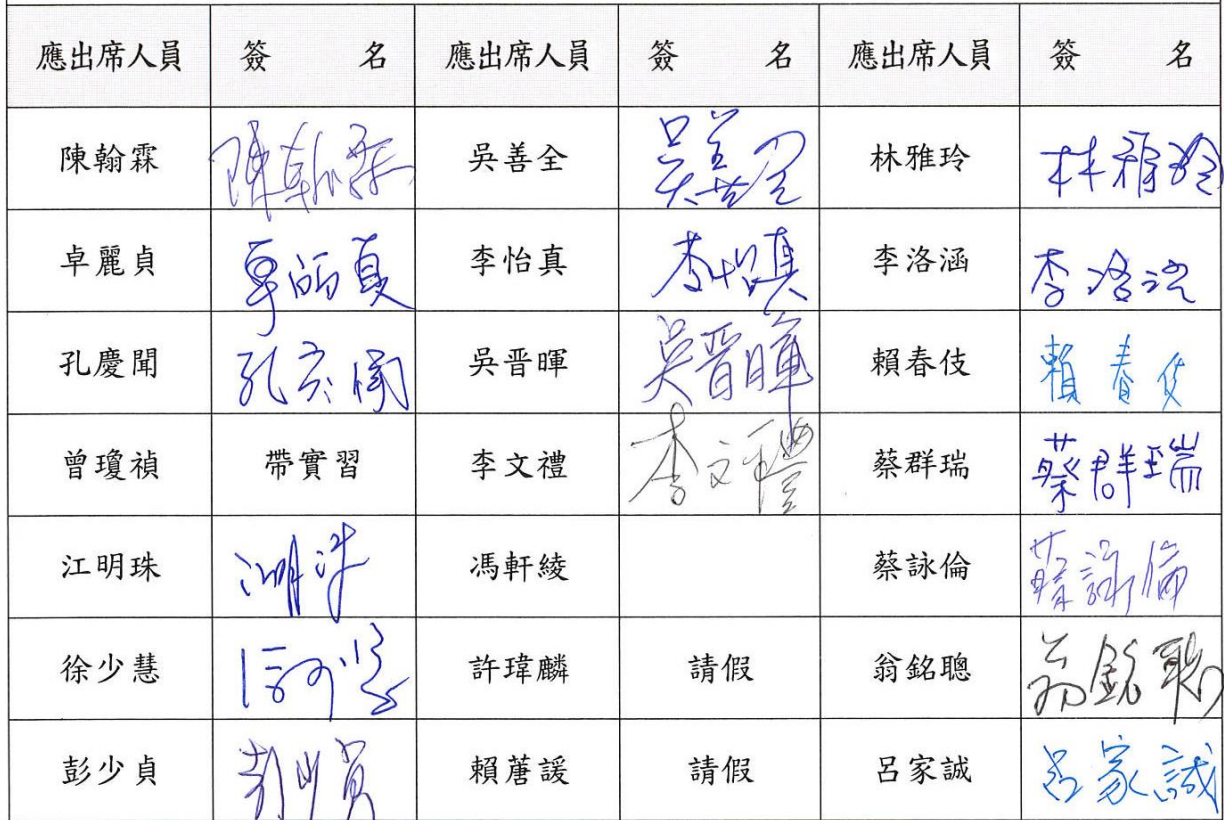 應出席人員 簽 名 應出席人員 簽 名 應出席人員 簽 名
陳翰霖 陳翰霖 吳善全 吳善全 林雅玲 林雅玲
卓麗貞 卓麗貞 李怡真 李怡真 李洛涵 李洛涵
孔慶聞 孔慶聞 吳晋暉 吳晋暉 賴春伎 賴春伎
曾瓊禎 帶實習 李文禮 李文禮 蔡群瑞 蔡群瑞
江明珠 江明珠 馮軒綾 蔡詠倫 蔡詠倫
徐少慧 徐少慧 許瑋麟 請假 翁銘聰 翁銘聰
彭少貞 彭少貞 賴蓎諼 請假 呂家誠 呂家誠